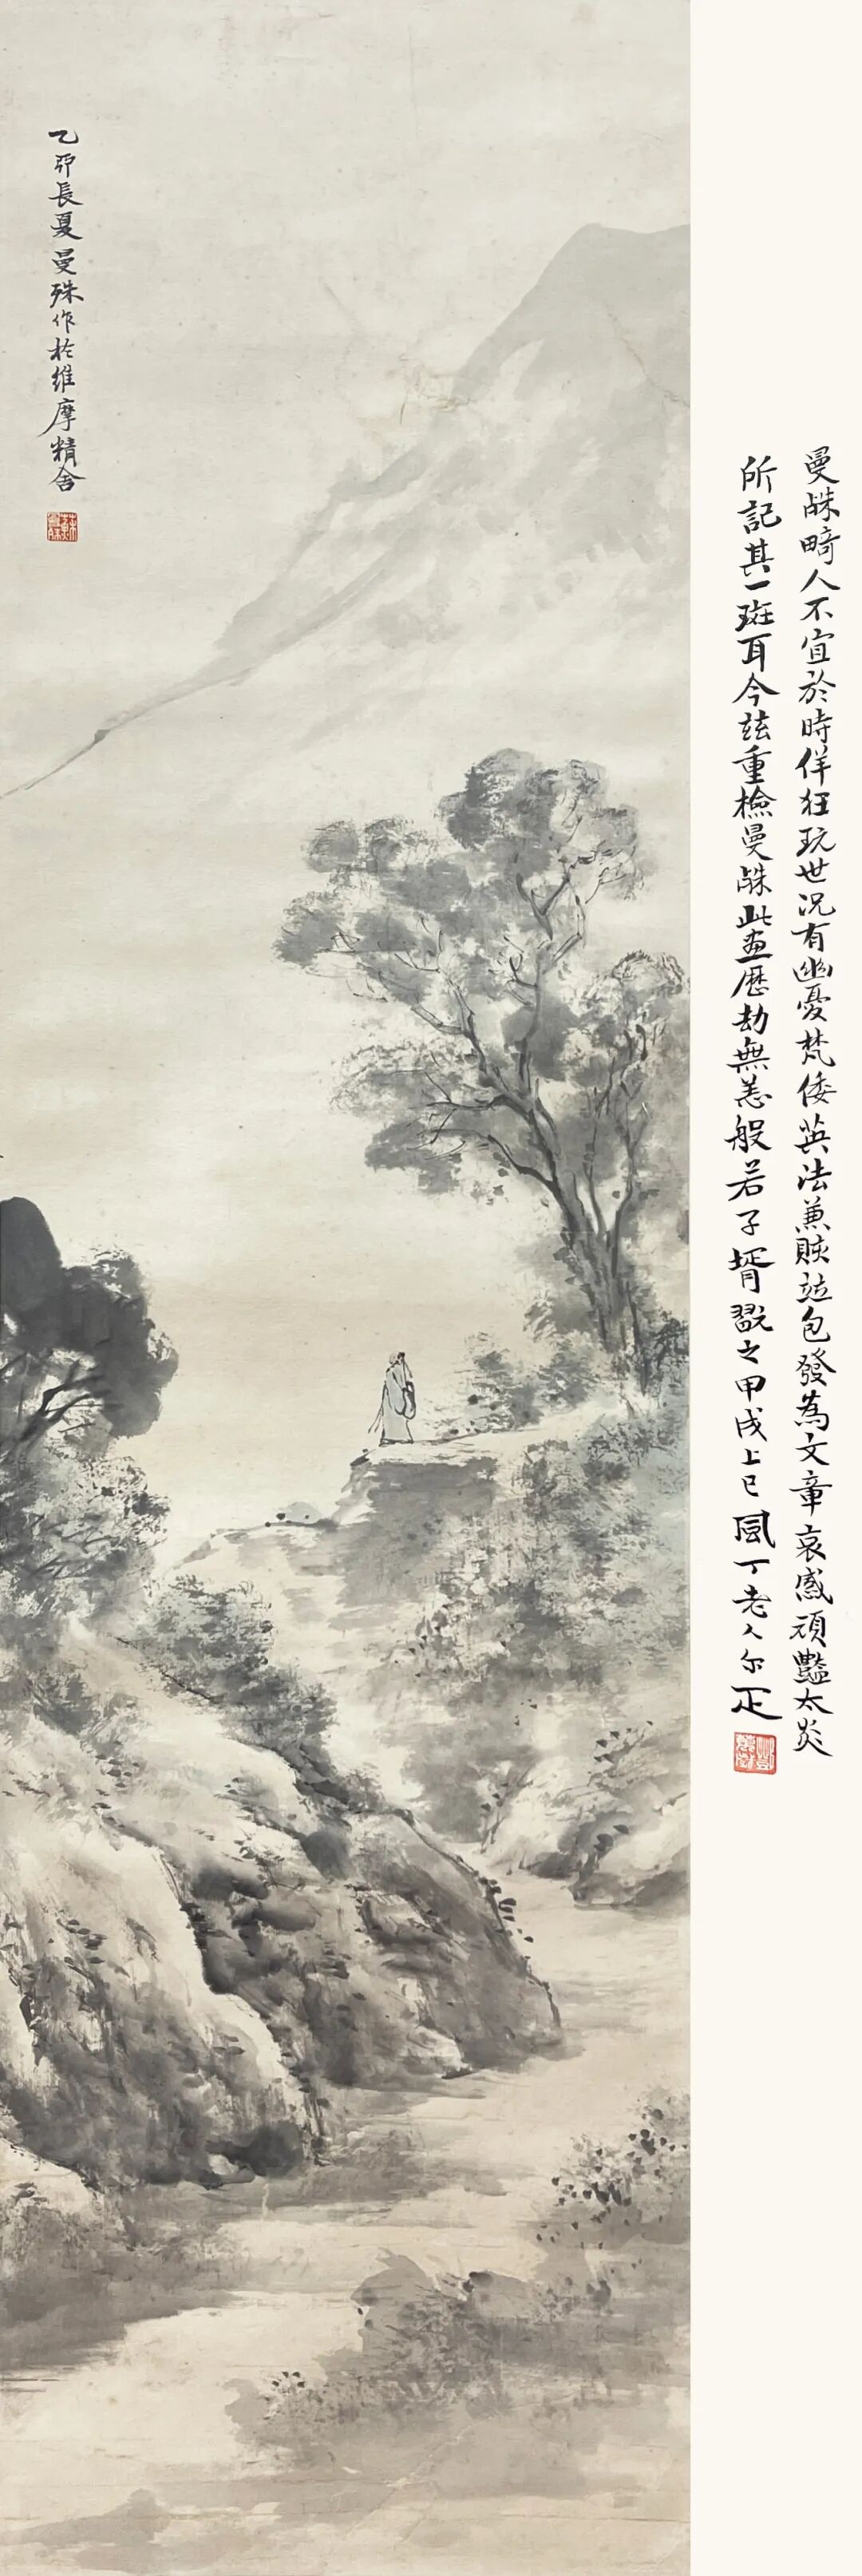 曼殊畸人不宜於時佯狂玩世況有幽憂梵倭英法兼賅竝包發為文章哀感頑豔太炎
所記其一斑耳今茲重檢曼殊此畫歷劫無恙般若子壻翫之甲戌上巳風丁老人尔疋
乙卯長夏曼殊作於維摩精舍